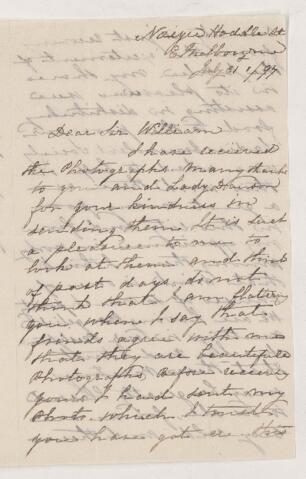 Hoddle St
Melbourne
July 21 / 97
Dear Sir William
I have received
the Photographs many thanks
to you and Lady Dawson
for your kindness in
sending them It is such
a pleasure to me to
look at them and think
of past days do not
think that I am flattering
you when I say that
friends agree with me
that they are beautiful
Photographs before receiving
yours I had sent my
Photo which I trust
you have got ere this